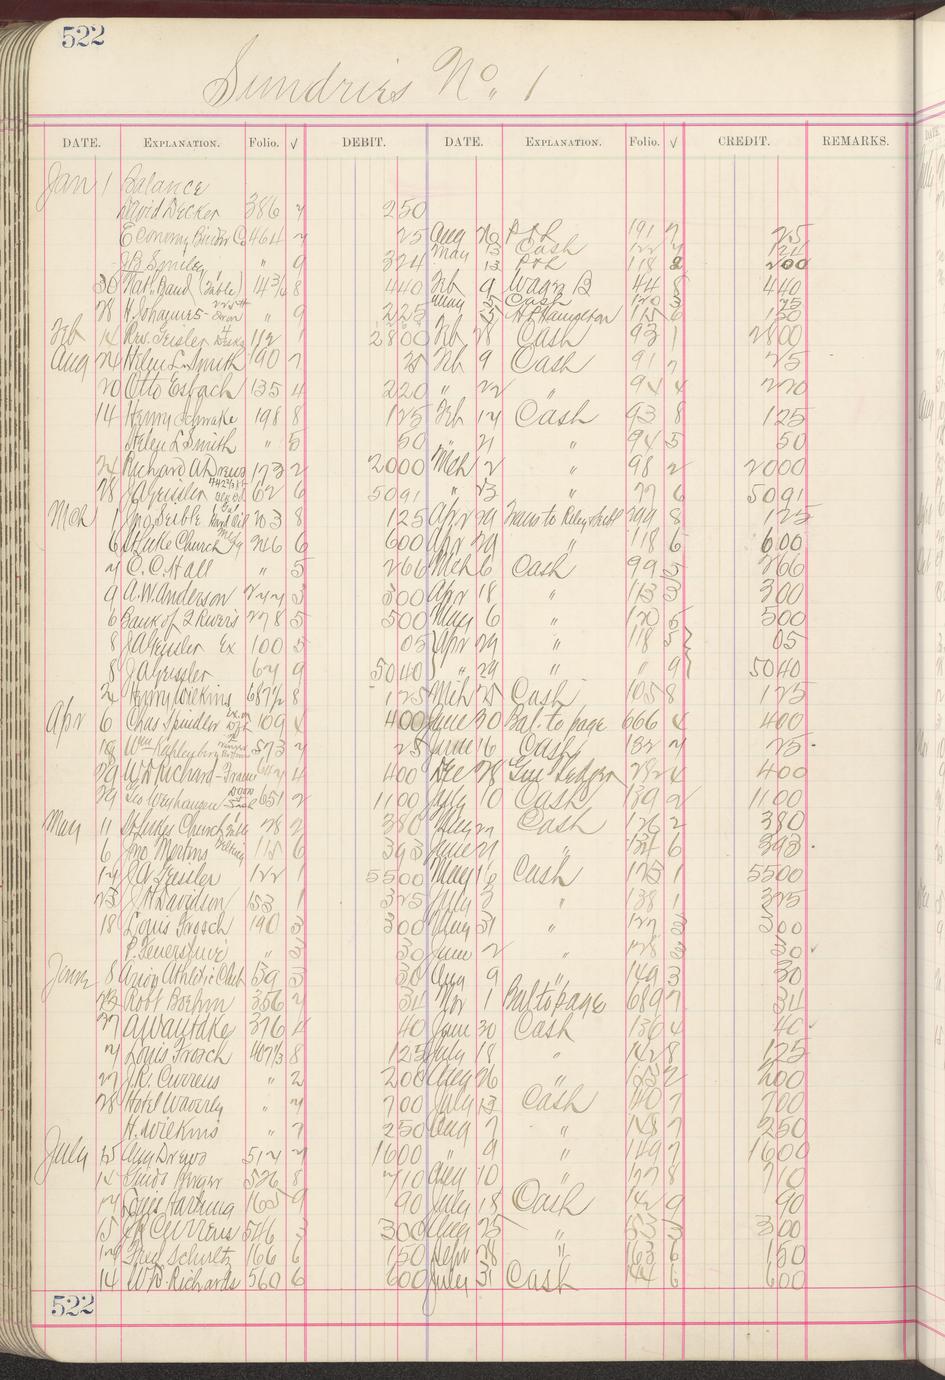 522
Sundries No. 1
DATE. EXPLANATION. Folio. √ DEBIT. DATE. EXPLANATION. Folio. √ CREDIT. REMARKS.
Jan 1 Balance
David Decker 386 250
Economy 464 25 Aug P&L 191 7 25
J B Smiley " 9 324 May 13 Cash 124
13 P&L 118 8 200
30 Nat. Band (Table) 440 Feb 9 44 8 440
28 H. " 9 225 May 5 Cash 3 75
H. P. Hampton 6 150
Feb 14 Geisler 112 1 2800 Feb 28 Cash 93 1 2800
Aug 24 Helen L. Smith 190 7 25 Feb 9 Cash 91 7 25
20 Otto Esbach 135 4 220 " 22 " 94 4 220
14 Henry 198 8 125 Feb 14 Cash 93 8 125
Helen L Smith " 5 50 " 21 " 94 5 50
24 Richard A Drews 173 2 2000 Mch 2 " 98 2 2000
28 J A Geissler 62 6 5091 " 23 " 77 6 5091
Mch 1 Jno. Seible 203 8 125 Apr 29 Trans to 299 8 125
6 St Luke Church 246 6 600 Apr 29 " 118 6 600
7 C. C. Hall " 5 266 Mch 6 Cash 99 5 266
9 A. W. Anderson 277 3 300 Apr 18 " 113 3 300
6 Bank of 2 Rivers 278 5 500 May 6 " 120 5 500
8 J A Geissler Ex 100 5 05 Apr 29 " 118 5 05
8 J A Geissler 67 9 5040 " 29 " " 9 5040
Henry Wilkins 687½ 8 125 Mch 25 Cash 105 8 125
Apr 6 Chas Spindler 109 4 400 June 30 Bal. to page 666 4 400
18 Wm 573 7 25 June 16 Cash 132 7 25
29 W D Richard - Frame 4 400 Dec 28 Gen Ledger 4 400
29 Geo 651 2 1100 July 10 Cash 139 2 1100
May 11 St. Lukes Church 78 2 380 May 27 Cash 126 2 380
6 Jno Mertins 115 6 393 June 21 " 134 6 393
14 J. A. Geissler 122 1 5500 May 16 Cash 125 1 5500
23 J H Davidson 153 1 325 July 3 " 138 1 325
18 Louis Frosch 190 3 300 May 31 " 127 3 300
P. " 3 30 June 2 " 128 3 30
June 8 Arion Athletic Club 59 3 30 Aug 9 " 149 3 30
23 Robt Boehm 356 7 34 Nov 1 Bal to page 689 7 34
27 A Wautake 376 4 40 June 30 Cash 136 4 40
7 Louis Frosch 407½ 8 125 July 18 " 142 8 125
27 J. R. Currens " 2 200 Aug 26 " 2 200
28 Hotel Waverly " 7 700 July 13 Cash 140 7 700
H. Wilkins " 7 250 Aug 7 " 148 7 250
July 15 Aug Drews 514 7 1600 " 9 " 149 7 1600
14 Guido 526 8 710 Aug 10 " 8 710
14 Louis Hartung 165 9 90 July 18 Cash 142 9 90
15 J R Currens 546 3 300 Aug 25 " 153 3 300
14 Fred Schultz 166 6 150 Sepr 28 " 163 6 150
14 W. D. Richards 560 6 600 July 31 Cash 144 6 600
522